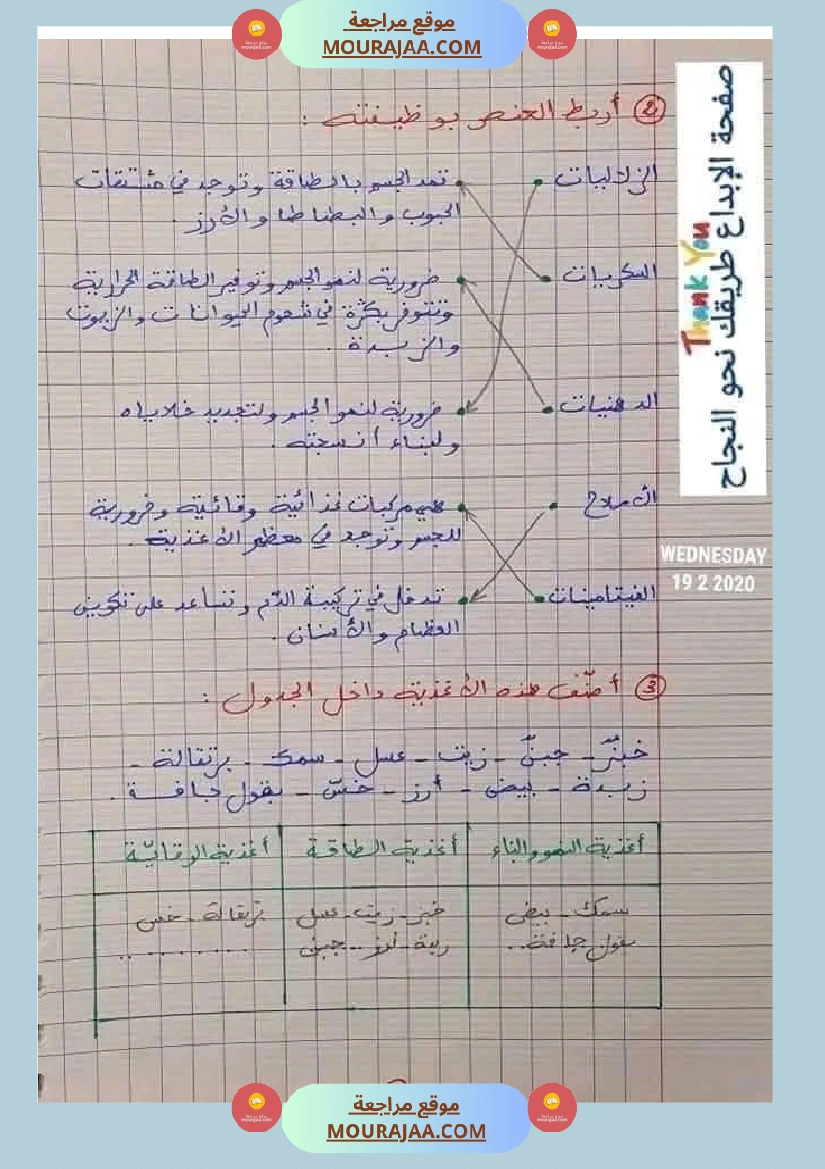 موقع مراجعة
MOURAJAA.COM
② أربط العنصر بوظيفته :
الزلاليات
تمد الجسم بالطاقة وتوجد في مشتقات
الحبوب والبطاطا والأرز .
السكريات
ضرورية لنمو الجسم وتوفير الطاقة الحرارية
وتتوفر بكثرة في شحوم الحيوانات والزيوت
والزبدة .
الدهنيات
ضرورية لنمو الجسم ولتجديد خلاياه
ولبناء أنسجته .
الأملاح
هي مركبات غذائية وقائية وضرورية
للجسم وتوجد في معظم الأغذية .
الفيتامينات
تدخل في تركيبة الدم وتساعد على تكوين
العظام والأسنان .
③ أصنّف هذه الأغذية داخل الجدول :
خبز - جبن - زيت - عسل - سمك - برتقالة -
زبدة - بيض - أرز - خسّ - بقول جافة .
أغذية النمو والبناء
أغذية الطاقة
أغذية الوقايّة
سمك - بيض
بقول جافة..
خبز - زيت - عسل
زبدة - أرز - جبن
برتقالة - خس
..........
صفحة الإبداع طريقك نحو النجاح
Thank You
WEDNESDAY
19 2 2020
موقع مراجعة
MOURAJAA.COM